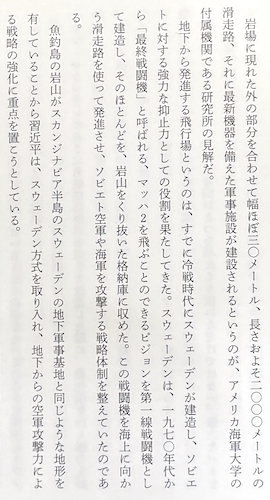 岩場に現れた外の部分を合わせて幅ほぼ三〇メートル、長さおよそ二〇〇〇メートルの
滑走路、それに最新機器を備えた軍事施設が建設されるというのが、アメリカ海軍大学の
付属機関である研究所の見解だ。
地下から発進する飛行場というのは、すでに冷戦時代にスウェーデンが建造し、ソビエ
トに対する強力な抑止力としての役割を果たしてきた。スウェーデンは、一九七〇年代か
ら「最終戦闘機」と呼ばれる、マッハ2を飛ぶことのできるビジョンを第一線戦闘機とし
て建造し、そのほとんどを、岩山をくり抜いた格納庫に収めた。この戦闘機を海上に向か
う滑走路を使って発進させ、ソビエト空軍や海軍を攻撃する戦略体制を整えていたのであ
る。
魚釣島の岩山がスカンジナビア半島のスウェーデンの地下軍事基地と同じような地形を
有していることから習近平は、スウェーデン方式を取り入れ、地下からの空軍攻撃力によ
る戦略の強化に重点を置こうとしている。